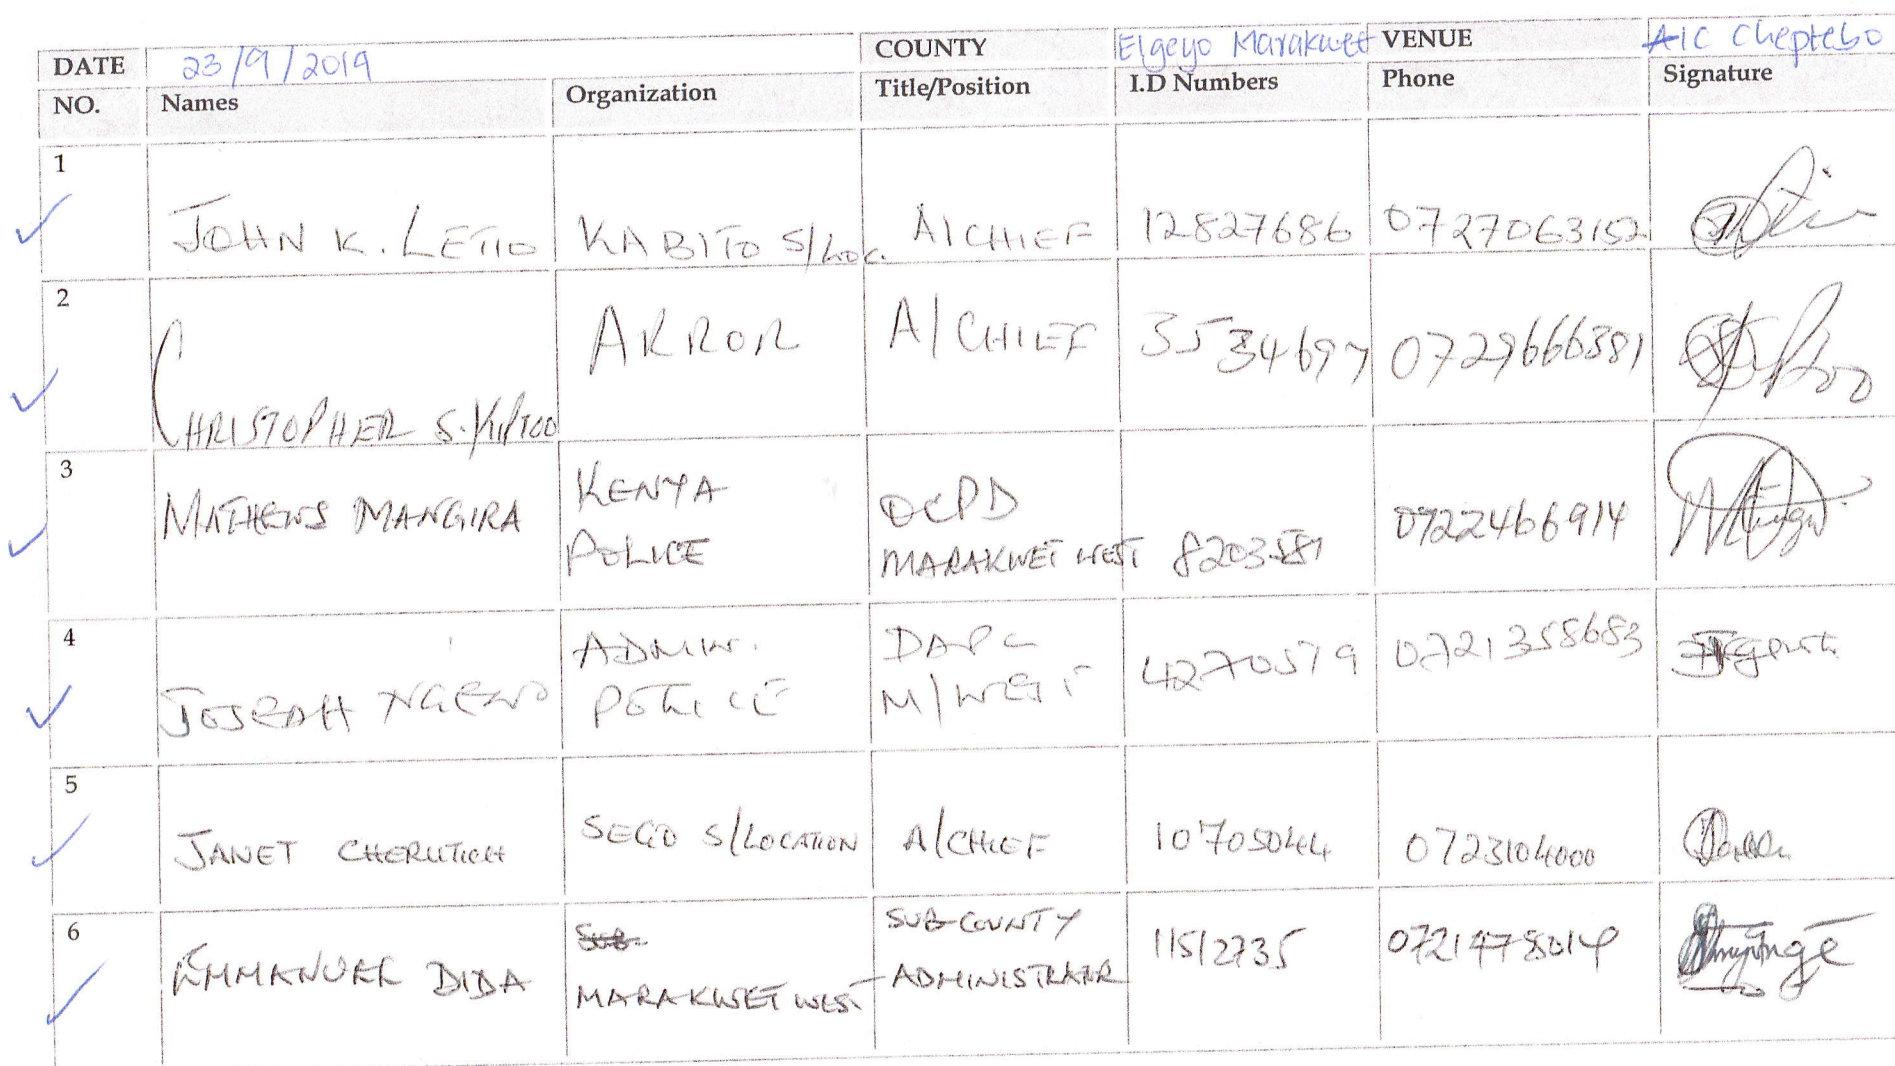 DATE 23/9/2019 COUNTY Elgeyo Marakwet VENUE AIC Cheptebo
NO. Names Organization Title/Position I.D Numbers Phone Signature
1 JOHN K. LETIO KABITO S/Loc. A/CHIEF 12827686 0727063152
2 CHRISTOPHER S. KIPTOO ARROR A/CHIEF 3534697 0729666381
3 MATHEWS MANGIRA KENYA
POLICE OCPD
MARAKWET WEST 0722466914
4 JOSEPH ADMIN.
POLICE DAPC
M/WEST 4270579 0721358683
5 JANET CHERUTICH SEGO S/LOCATION A/CHIEF 10705044 0723104000
6 EMMANUEL DIDA MARAKWET WEST SUB-COUNTY
ADMINISTRATOR 11512735 0721478014